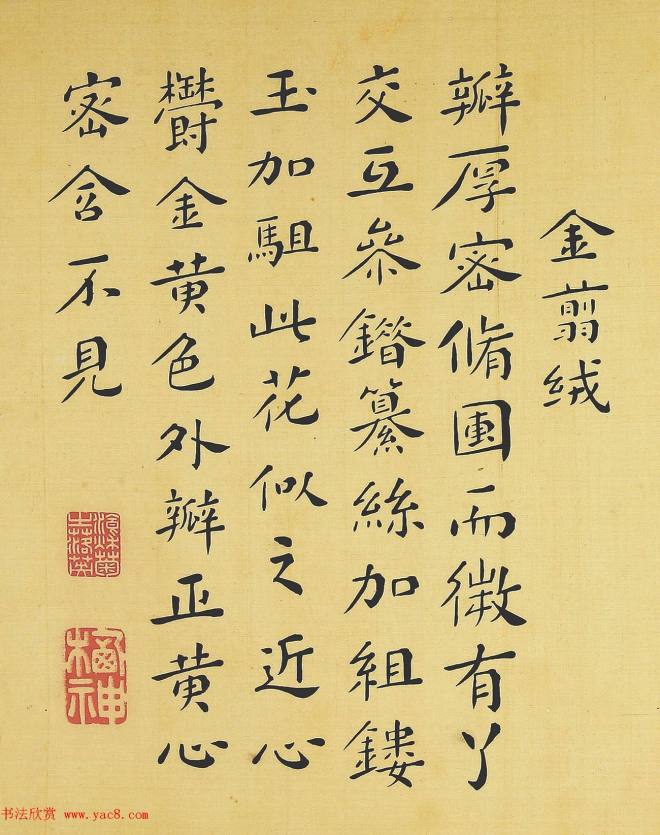 金翦絨
瓣厚密脩圑而微有丫
交互叅鍇纂絲加組鏤
玉加駔此花似之近心
欝金黄色外瓣正黄心
密含不見
书法欣赏 www.yac8.com